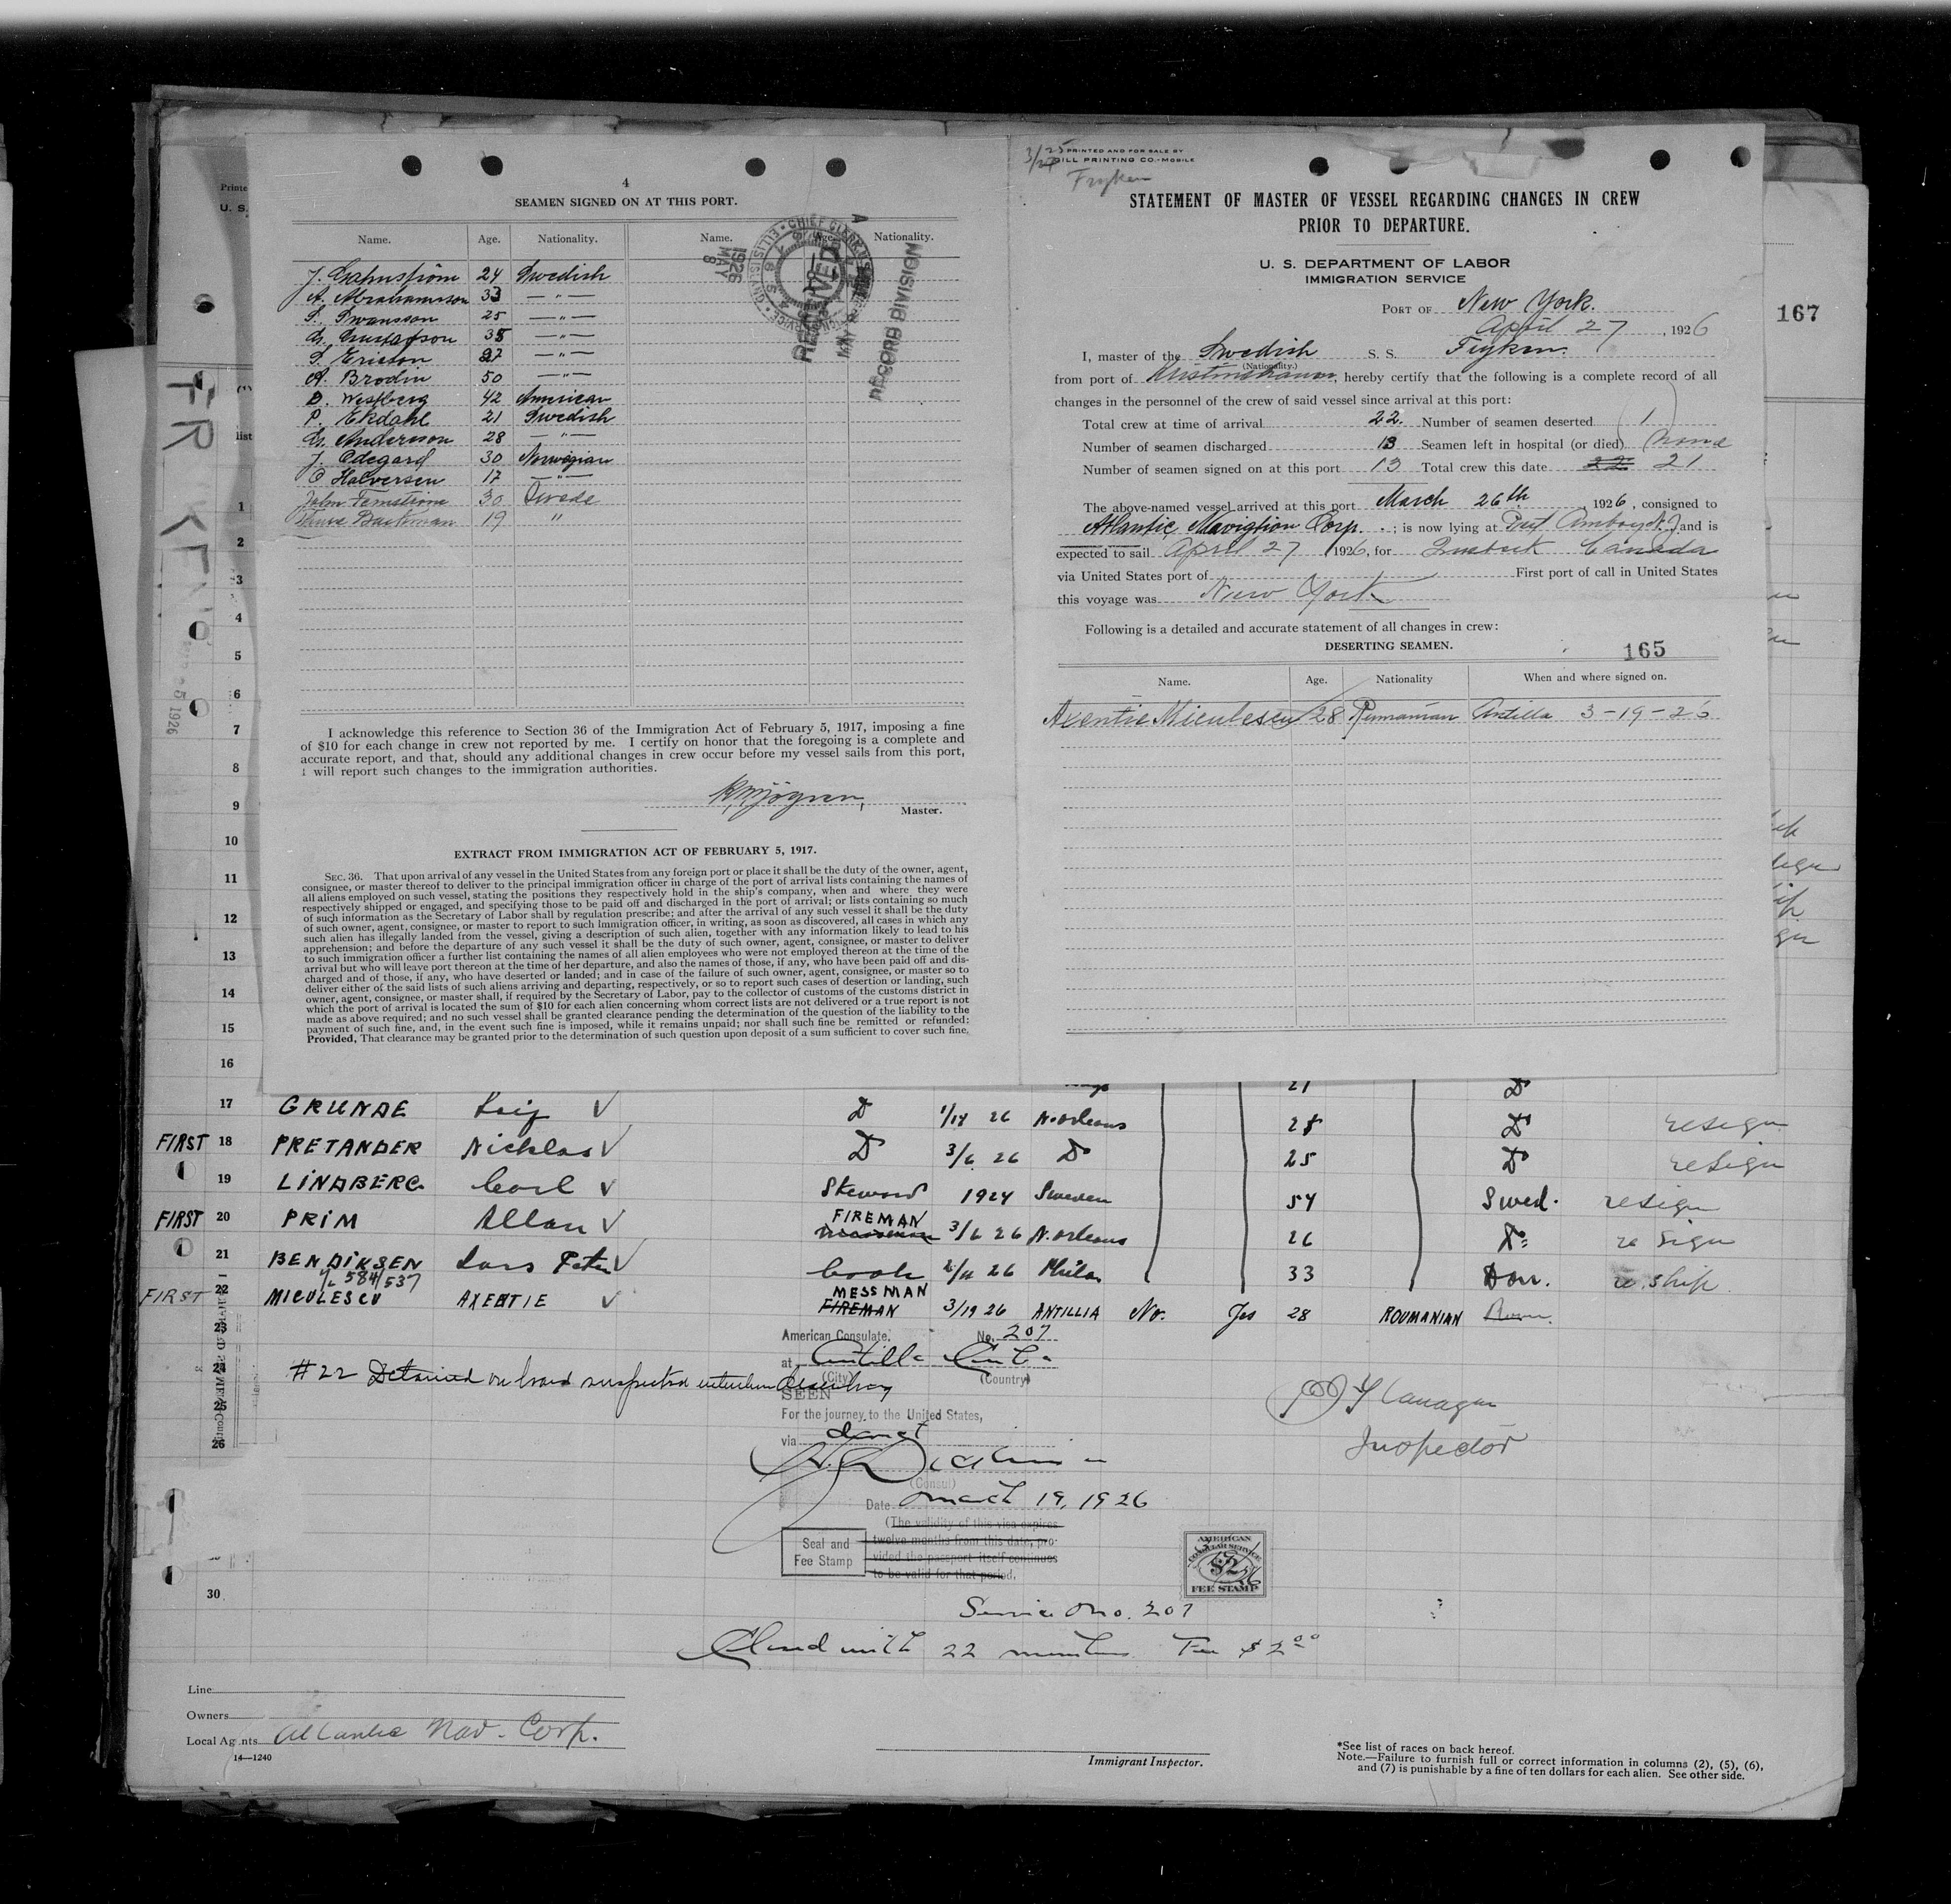 4
SEAMEN SIGNED ON AT THIS PORT.
Name. Age. Nationality. Name. Age. Nationality.
24 Swedish
A. Abrahamsson 33 —"—
S. Swansson 25 —"—
G. Gustafson 38 —"—
S. Ericson 27 —"—
A. Brodin 50 —"—
D. Westberg 42 American
P. Ekdahl 21 Swedish
G. Anderson 28 —"—
J. Odegard 30 Norwegian
O Halversen 17 —"—
John 30 Swede
19 "
1926
MAY
8
RECEIVED
RECORD DIVISION
I acknowledge this reference to Section 36 of the Immigration Act of February 5, 1917, imposing a fine
of $10 for each change in crew not reported by me. I certify on honor that the foregoing is a complete and
accurate report, and that, should any additional changes in crew occur before my vessel sails from this port,
I will report such changes to the immigration authorities.
Master.
EXTRACT FROM IMMIGRATION ACT OF FEBRUARY 5, 1917.
SEC. 36. That upon arrival of any vessel in the United States from any foreign port or place it shall be the duty of the owner, agent,
consignee, or master thereof to deliver to the principal immigration officer in charge of the port of arrival lists containing the names of
all aliens employed on such vessel, stating the positions they respectively hold in the ship's company, when and where they were
respectively shipped or engaged, and specifying those to be paid off and discharged in the port of arrival; or lists containing so much
of such information as the Secretary of Labor shall by regulation prescribe; and after the arrival of any such vessel it shall be the duty
of such owner, agent, consignee, or master to report to such immigration officer, in writing, as soon as discovered, all cases in which any
such alien has illegally landed from the vessel, giving a description of such alien, together with any information likely to lead to his
apprehension; and before the departure of any such vessel it shall be the duty of such owner, agent, consignee, or master to deliver
to such immigration officer a further list containing the names of all alien employees who were not employed thereon at the time of the
arrival but who will leave port thereon at the time of her departure, and also the names of those, if any, who have been paid off and dis-
charged and of those, if any, who have deserted or landed; and in case of the failure of such owner, agent, consignee, or master so to
deliver either of the said lists of such aliens arriving and departing, respectively, or so to report such cases of desertion or landing, such
owner, agent, consignee, or master shall, if required by the Secretary of Labor, pay to the collector of customs of the customs district in
which the port of arrival is located the sum of $10 for each alien concerning whom correct lists are not delivered or a true report is not
made as above required; and no such vessel shall be granted clearance pending the determination of the question of the liability to the
payment of such fine, and, in the event such fine is imposed, while it remains unpaid; nor shall such fine be remitted or refunded:
Provided, That clearance may be granted prior to the determination of such question upon deposit of a sum sufficient to cover such fine.
PRINTED AND FOR SALE BY
GILL PRINTING CO.-MOBILE
Fryken
STATEMENT OF MASTER OF VESSEL REGARDING CHANGES IN CREW
PRIOR TO DEPARTURE.
U. S. DEPARTMENT OF LABOR
IMMIGRATION SERVICE
PORT OF New York.
April 27, 1926
I, master of the Swedish S. S. Fryken.
(Nationality.)
from port of Kristinehamn, hereby certify that the following is a complete record of all
changes in the personnel of the crew of said vessel since arrival at this port:
Total crew at time of arrival 22. Number of seamen deserted 1
Number of seamen discharged 13 Seamen left in hospital (or died) None
Number of seamen signed on at this port 13 Total crew this date 22 21
The above-named vessel arrived at this port March 26th, 1926, consigned to
Atlantic Navigation Corp. ; is now lying at Port Amboy N.J and is
expected to sail April 27 1926, for Canada
via United States port of First port of call in United States
this voyage was New York
Following is a detailed and accurate statement of all changes in crew:
DESERTING SEAMEN.
165
Name. Age. Nationality When and where signed on.
Axentie Miculescu 28 Rumanian Antilla 3-19-26
167
Printe
U. S.
list
1
2
3
4
5
6
7
8
9
10
11
12
13
14
15
16
21 Do
17 GRUNDE Leif V Do 1/14 26 N.orleans 28 Do resign
FIRST 18 PRETANDER Nicklas V Do 3/6 26 Do 25 Do resign
19 LINDBERG Carl V Steward 1924 Sweden 54 Swed. resign
FIRST 20 PRIM Allan V FIREMAN Messman 3/6 26 N.orleans 26 Do resign
21 BENDIKSEN Lars Peter V Cook 2/11 26 Phila 33 Dan. reship
584/537
FIRST 22 MICULESCU AXENTIE V MESSMAN FIREMAN 3/19 26 ANTILLIA No. Yes 28 ROUMANIAN Roum.
23
24
25
26
30
#22 Detained on board suspected intention deserting
American Consulate, No. 207
at Antilla Cuba
(City) (Country)
SEEN
For the journey to the United States,
via direct
(Consul)
Date March 19, 1926
(The validity of this visa expires
twelve months from this date, pro-
vided the passport itself continues
to be valid for that period.
Seal and
Fee Stamp
AMERICAN
CONSULAR SERVICE
$2
FEE STAMP
Flanagan
Inspector
Service No. 207
Closed with 22 members Fee $2.00
Line
Owners
Local Agents Atlantic Nav. Corp.
14—1240
Immigrant Inspector.
*See list of races on back hereof.
Note.—Failure to furnish full or correct information in columns (2), (5), (6),
and (7) is punishable by a fine of ten dollars for each alien. See other side.